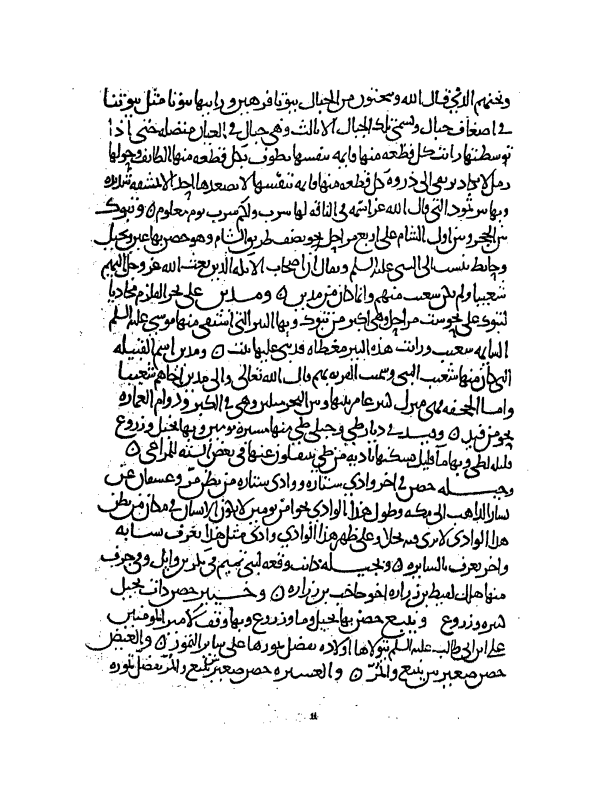 ونحتهم الذي قال الله وتنحتون من الجبال بيوتا فرهين ورايتها بيوتا مثل بيوتنا
في اضعاف جبال وتسمى تلك الجبال الاثالث وهي جبال في العيان متصله حتى اذا
توسطتها رايت كل قطعه منها قايمه بنفسها يطوف بكل قطعه منها الطايف وحولها
رمل لا يكاد يرتقى الى ذروه كل قطعه منها قايمه بنفسها لا يصعدها احد الا بمشقه شديده
وبها بير ثمود التي قال الله عز اسمه في الناقه لها شرب ولكم شرب يوم معلوم ٥ وتبوك
بين الحجر وبين اول الشام على اربع مراحل نحو نصف طريق الشام وهو حصن بها عين ونخيل
وحايط ينسب الى النبي عليه السلم ويقال ان اصحاب الايكه الذين بعث الله عز وجل اليهم
شعيبا ولم يكن شعيب منهم وانما كان من مدين ٥ ومدين على بحر القلزم محاذيا
لتبوك على نحو ست مراحل وهي اكبر من تبوك وبها البير التي استقى منها موسى عليه السلم
لسايمه شعيب ورايت هذه البير مغطاه قد بني عليها بيت ٥ ومدين اسم القبيله
التي كان منها شعيب النبي وسميت القريه بهم قال الله تعالى والى مدين اخاهم شعيبا
واما الجحفه فهي منزل عامر بينها وبين البحر ميلين وهي في الكبر ودوام العماره
نحو من فيد ٥ وفيد في ديار طي وجبلي طي منها مسيره يومين وبها نخيل وزروع
قليله لطي وبها ما قليل يسكنها باديه من طي ينتقلون عنها في بعض السنه للمراعي ٥
وجبله حصن في اخر وادي ستاره ووادي ستاره بين بطن مر وعسفان عن
يسار الذاهب الى مكه وطول هذا الوادي نحوا من يومين لا يكون الانسان في مكان من بطن
هذا الوادي لا يرى فيه نخلا وعلى ظهر هذا الوادي وادي مثل هذا يعرف بسايه
واخر يعرف بالسايره ٥ وبجبله كانت وقعه لبني تميم في بكر بن وايل وفي جرف
منها هلك لقيط بن زراره اخو حاجب بن زراره ٥ وخيبر حصن ذات نخيل
كثيره وزروع وينبع حصن بها نخيل وما وزروع وبها وقف لامير المومنين
على بن ابي طالب عليه السلم يتولاها اولاده بفضل تمورها على ساير التمور ٥ والعيص
حصن صغير بين ينبع والمر ٥ والعشيره حصن صغير بين ينبع والمر يفضل تموره
11